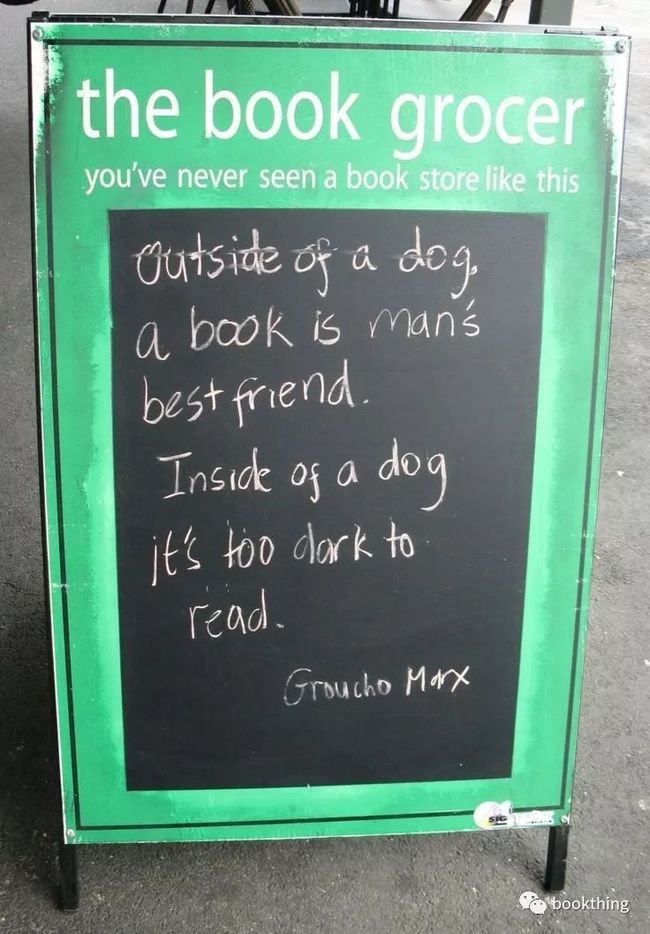 the book grocer
you've never seen a book store like this
Outside of a dog,
a book is man's
best friend.
Inside of a dog
it's too dark to
read.
Groucho Marx
SIG
bookthing